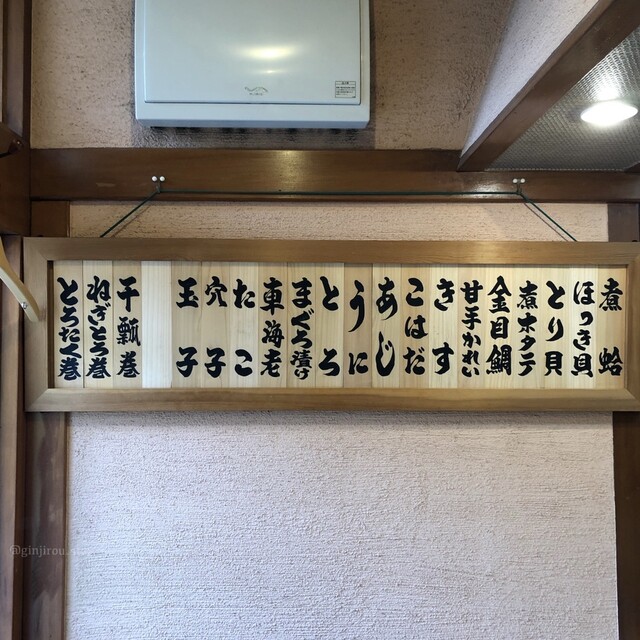 煮蛤
ほっき貝
とり貝
煮ホタテ
金目鯛
甘手かれい
きす
こはだ
あじ
うに
とろ
まぐろ漬け
車海老
たこ
穴子
玉子
干瓢巻
ねぎとろ巻
とろたく巻